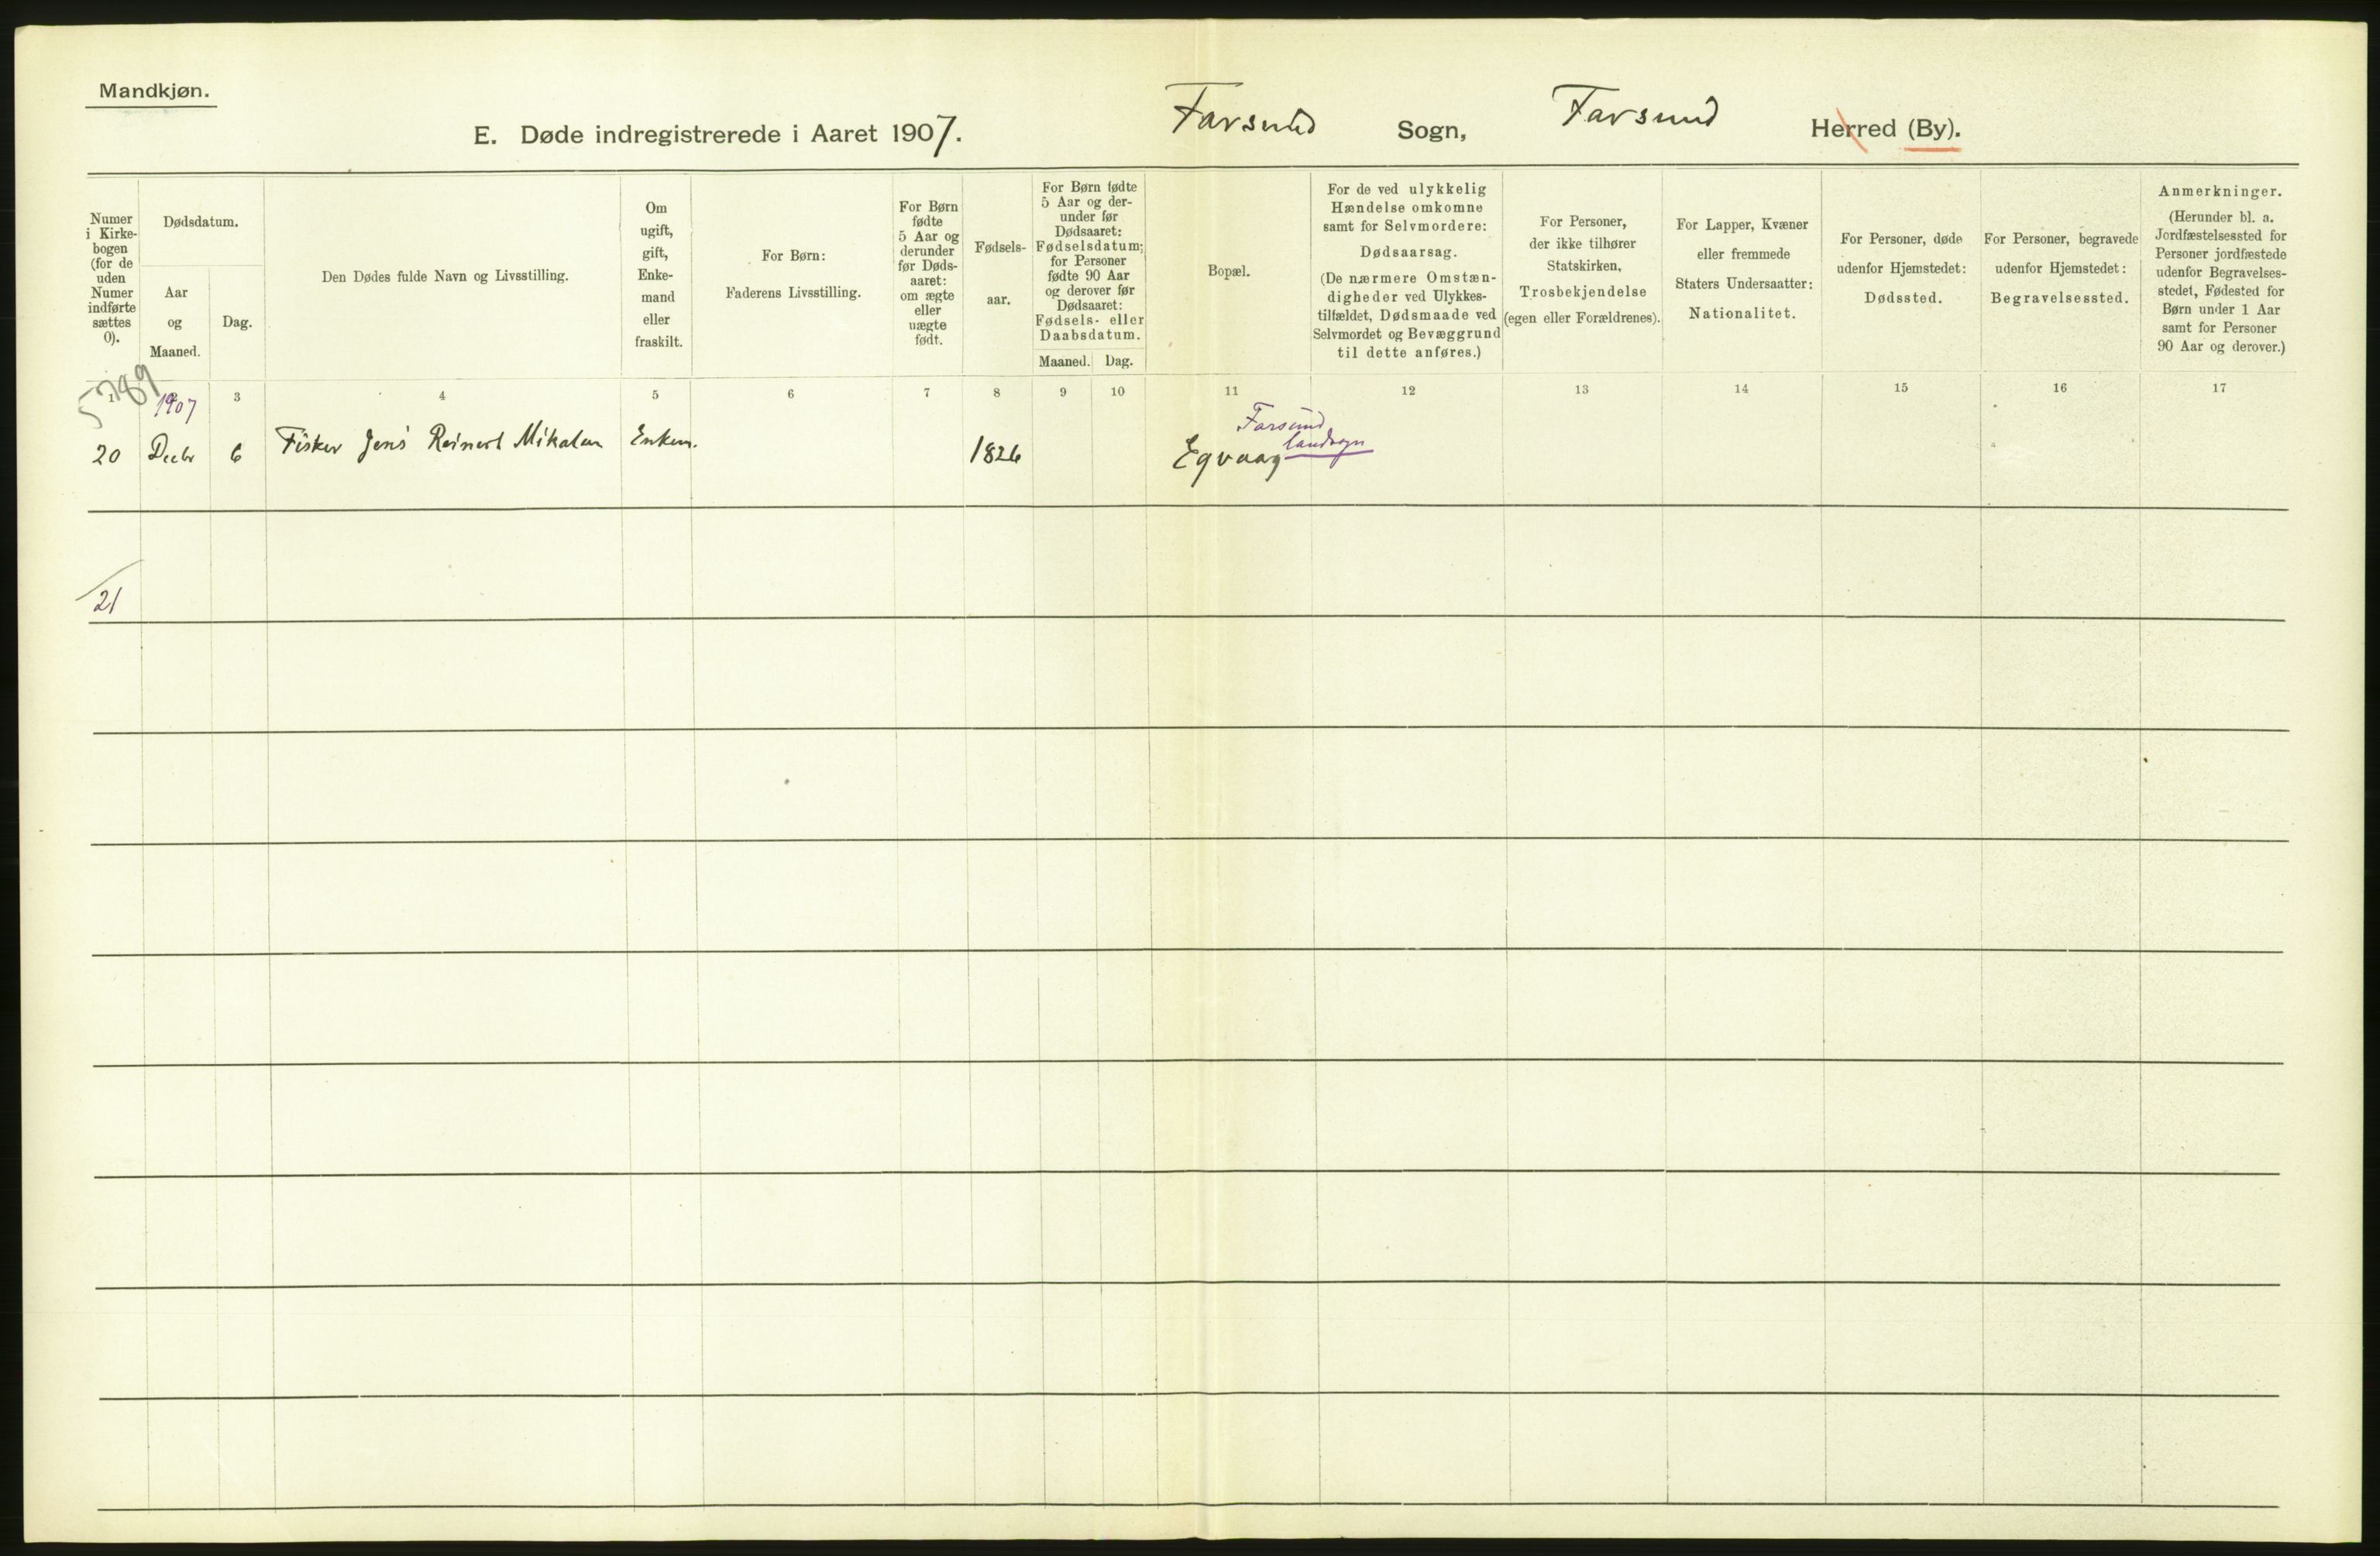 Mandkjøn.
E. Døde indregistrerede i Aaret 1907. Farsund Sogn, Farsund Herred (By).
Numer i Kirke-
bogen
(for de
uden
Numer
indførte
sættes
0).
Dødsdatum.
Aar
og
Maaned.
Dag.
Den Dødes fulde Navn og Livsstilling.
Om
ugift,
gift,
Enke-
mand
eller
fraskilt.
For Børn:
Faderens Livsstilling.
For Børn
fødte
5 Aar og
derunder
før Døds-
aaret:
om ægte
eller
uægte
født.
Fødsels-
aar.
For Børn fødte
5 Aar og der-
under før
Dødsaaret:
Fødselsdatum;
for Personer
fødte 90 Aar
og derover før
Dødsaaret:
Fødsels- eller
Daabsdatum.
Maaned. Dag.
Bopæl.
For de ved ulykkelig
Hændelse omkomne
samt for Selvmordere:
Dødsaarsag.
(De nærmere Omstæn-
digheder ved Ulykkes-
tilfældet, Dødsmaade ved
Selvmordet og Bevæggrund
til dette anføres.)
For Personer,
der ikke tilhører
Statskirken,
Trosbekjendelse
(egen eller Forældrenes).
For Lapper, Kvæner
eller fremmede
Staters Undersaatter:
Nationalitet.
For Personer, døde
udenfor Hjemstedet:
Dødssted.
For Personer, begravede
udenfor Hjemstedet:
Begravelsessted.
Anmerkninger.
(Herunder bl. a.
Jordfæstelsessted for
Personer jordfæstede
udenfor Begravelses-
stedet, Fødested for
Børn under 1 Aar
samt for Personer
90 Aar og derover.)
3 4 5 6 7 8 9 10 11 12 13 14 15 16 17
1907
Farsund
landsogn
20 Decbr 6 Fisker Jens Reinert Mikalsen Enkem. 1826 Egvaag
21